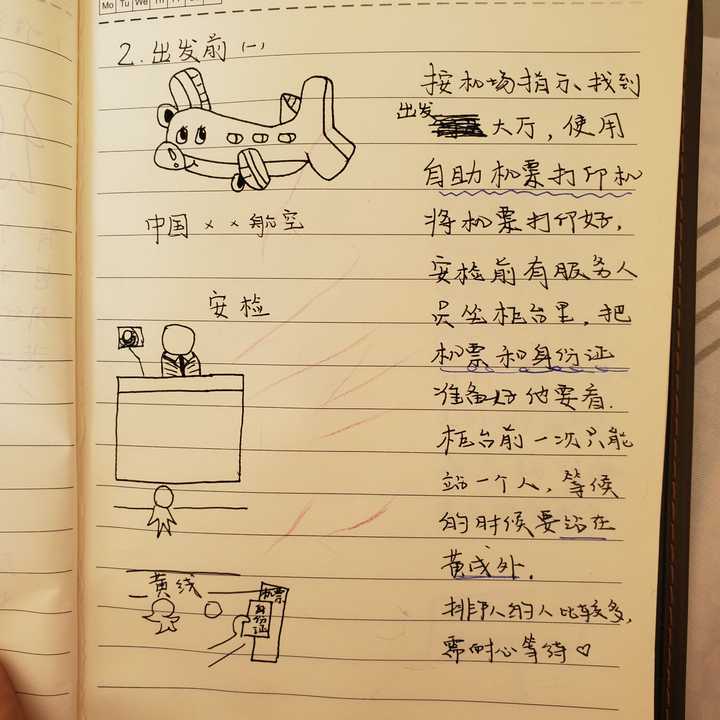 Mo Tu We Th Fr
2.出发前(一)
按机场指示、找到
出发
大厅，使用
自助机票打印机
将机票打印好，
安检前有服务人
员坐柜台里，把
机票和身份证
准备好他要看.
柜台前一次只能
站一个人，等候
的时候要站在
黄线外.
排队的人比较多，
需耐心等待♡
中国××航空
安检
黄线
机票
身份证